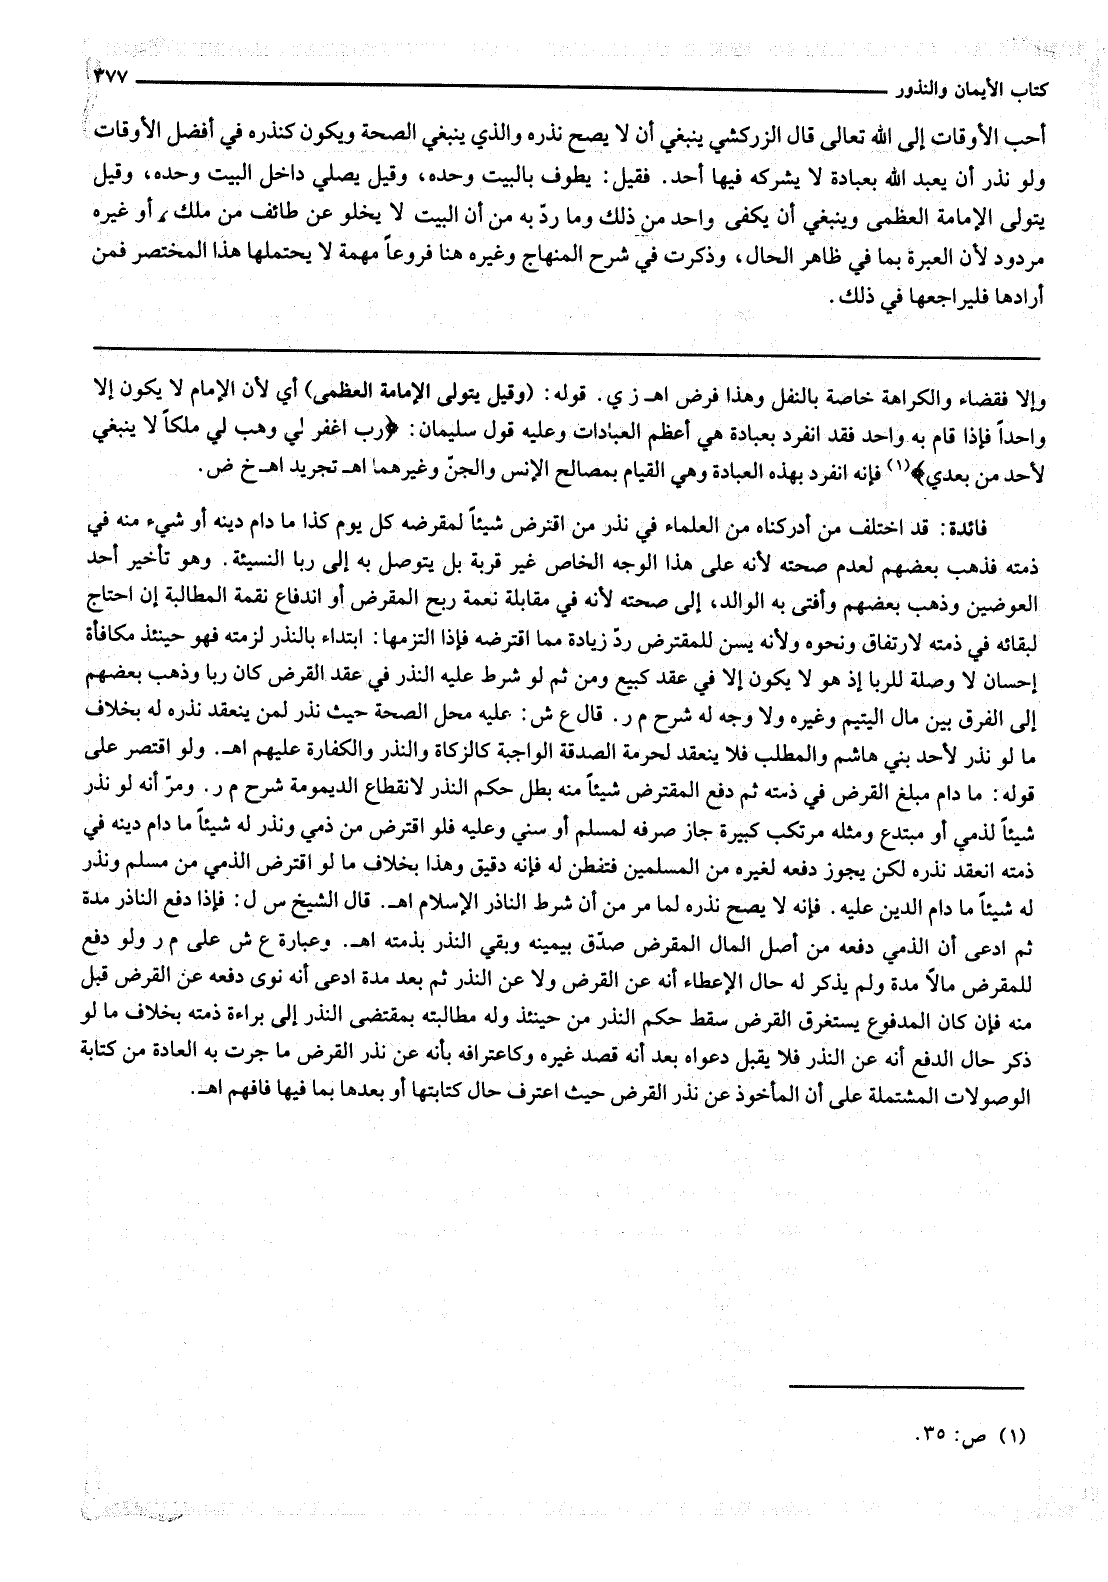 كتاب الأيمان والنذور ٣٧٧
أحب الأوقات إلى الله تعالى قال الزركشي ينبغي أن لا يصح نذره والذي ينبغي الصحة ويكون كنذره في أفضل الأوقات
ولو نذر أن يعبد الله بعبادة لا يشركه فيها أحد. فقيل: يطوف بالبيت وحده، وقيل يصلي داخل البيت وحده، وقيل
يتولى الإمامة العظمى وينبغي أن يكفى واحد من ذلك وما ردّ به من أن البيت لا يخلو عن طائف من ملك، أو غيره
مردود لأن العبرة بما في ظاهر الحال، وذكرت في شرح المنهاج وغيره هنا فروعاً مهمة لا يحتملها هذا المختصر فمن
أرادها فليراجعها في ذلك.
وإلا فقضاء والكراهة خاصة بالنفل وهذا فرض اهـ ز ي. قوله: (وقيل يتولى الإمامة العظمى) أي لأن الإمام لا يكون إلا
واحداً فإذا قام به واحد فقد انفرد بعبادة هي أعظم العبادات وعليه قول سليمان: ﴿رب اغفر لي وهب لي ملكاً لا ينبغي
لأحد من بعدي﴾(١) فإنه انفرد بهذه العبادة وهي القيام بمصالح الإنس والجنّ وغيرهما اهـ تجريد اهـ خ ض.
فائدة: قد اختلف من أدركناه من العلماء في نذر من اقترض شيئاً لمقرضه كل يوم كذا ما دام دينه أو شيء منه في
ذمته فذهب بعضهم لعدم صحته لأنه على هذا الوجه الخاص غير قربة بل يتوصل به إلى ربا النسيئة. وهو تأخير أحد
العوضين وذهب بعضهم وأفتى به الوالد، إلى صحته لأنه في مقابلة نعمة ربح المقرض أو اندفاع نقمة المطالبة إن احتاج
لبقائه في ذمته لارتفاق ونحوه ولأنه يسن للمقترض ردّ زيادة مما اقترضه فإذا التزمها: ابتداء بالنذر لزمته فهو حينئذ مكافأة
إحسان لا وصلة للربا إذ هو لا يكون إلا في عقد كبيع ومن ثم لو شرط عليه النذر في عقد القرض كان ربا وذهب بعضهم
إلى الفرق بين مال اليتيم وغيره ولا وجه له شرح م ر. قال ع ش: عليه محل الصحة حيث نذر لمن ينعقد نذره له بخلاف
ما لو نذر لأحد بني هاشم والمطلب فلا ينعقد لحرمة الصدقة الواجبة كالزكاة والنذر والكفارة عليهم اهـ. ولو اقتصر على
قوله: ما دام مبلغ القرض في ذمته ثم دفع المقترض شيئاً منه بطل حكم النذر لانقطاع الديمومة شرح م ر. ومرّ أنه لو نذر
شيئاً لذمي أو مبتدع ومثله مرتكب كبيرة جاز صرفه لمسلم أو سني وعليه فلو اقترض من ذمي ونذر له شيئاً ما دام دينه في
ذمته انعقد نذره لكن يجوز دفعه لغيره من المسلمين فتفطن له فإنه دقيق وهذا بخلاف ما لو اقترض الذمي من مسلم ونذر
له شيئاً ما دام الدين عليه. فإنه لا يصح نذره لما مر من أن شرط الناذر الإسلام اهـ. قال الشيخ س ل: فإذا دفع الناذر مدة
ثم ادعى أن الذمي دفعه من أصل المال المقرض صدّق بيمينه وبقي النذر بذمته اهـ. وعبارة ع ش على م ر ولو دفع
للمقرض مالاً مدة ولم يذكر له حال الإعطاء أنه عن القرض ولا عن النذر ثم بعد مدة ادعى أنه نوى دفعه عن القرض قبل
منه فإن كان المدفوع يستغرق القرض سقط حكم النذر من حينئذ وله مطالبته بمقتضى النذر إلى براءة ذمته بخلاف ما لو
ذكر حال الدفع أنه عن النذر فلا يقبل دعواه بعد أنه قصد غيره وكاعترافه بأنه عن نذر القرض ما جرت به العادة من كتابة
الوصولات المشتملة على أن المأخوذ عن نذر القرض حيث اعترف حال كتابتها أو بعدها بما فيها فافهم اهـ.
(١) ص: ٣٥.